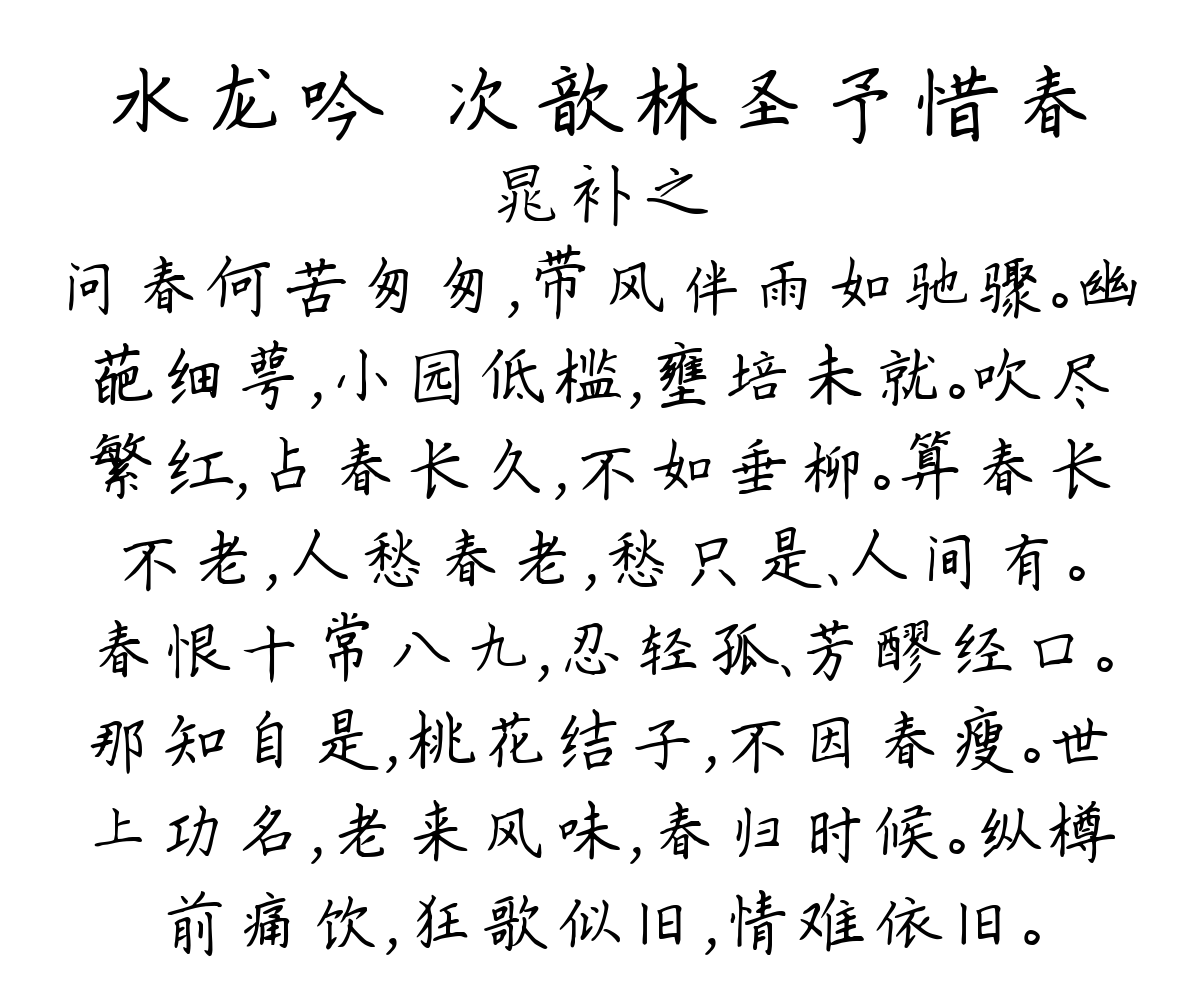 水龙吟 次歆林圣予惜春
晁补之
问春何苦匆匆,带风伴雨如驰骤。幽
葩细萼,小园低槛,壅培未就。吹尽
繁红,占春长久,不如垂柳。算春长
不老,人愁春老,愁只是、人间有。
春恨十常八九,忍轻孤、芳醪经口。
那知自是,桃花结子,不因春瘦。世
上功名,老来风味,春归时候。纵樽
前痛饮,狂歌似旧,情难依旧。